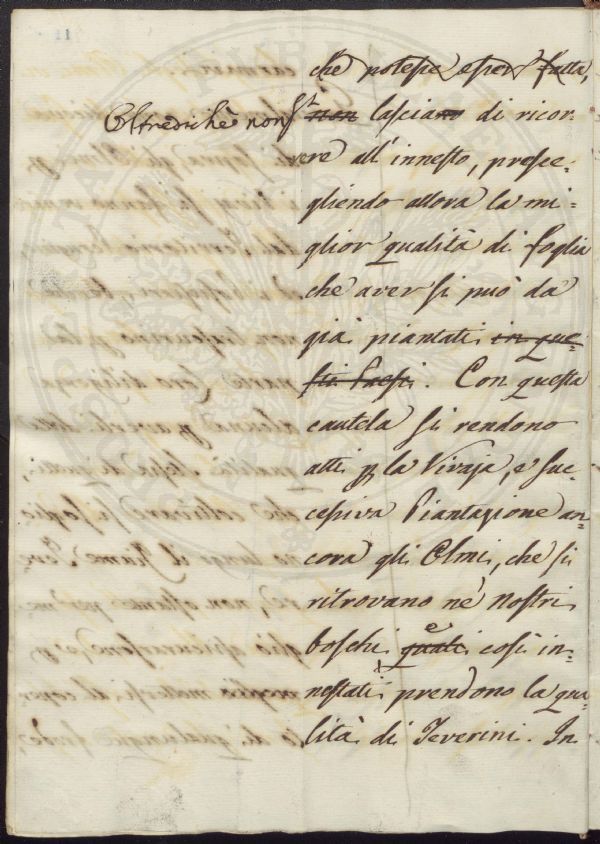 che potesse esser fatta,
Oltrediché non si non lasciano di ricor-
rere all'innesto, presce-
gliendo allora la mi-
glior qualità di foglia
che aver si può da
già piantati in que-
sti Paesi. Con questa
cautela si rendono
atti p la Vivaja, e suc-
cessiva Piantagione an-
cora gli Olmi, che si
ritrovano ne nostri
boschi quali e così in-
nestati prendono la qua-
lità di Teverini. In